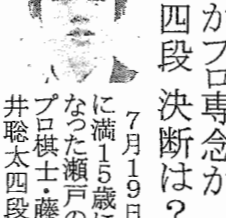 かプロ専念か
四段 決断は?
7月19日
に満15歳に
なった瀬戸の
プロ棋士・藤
井聡太四段